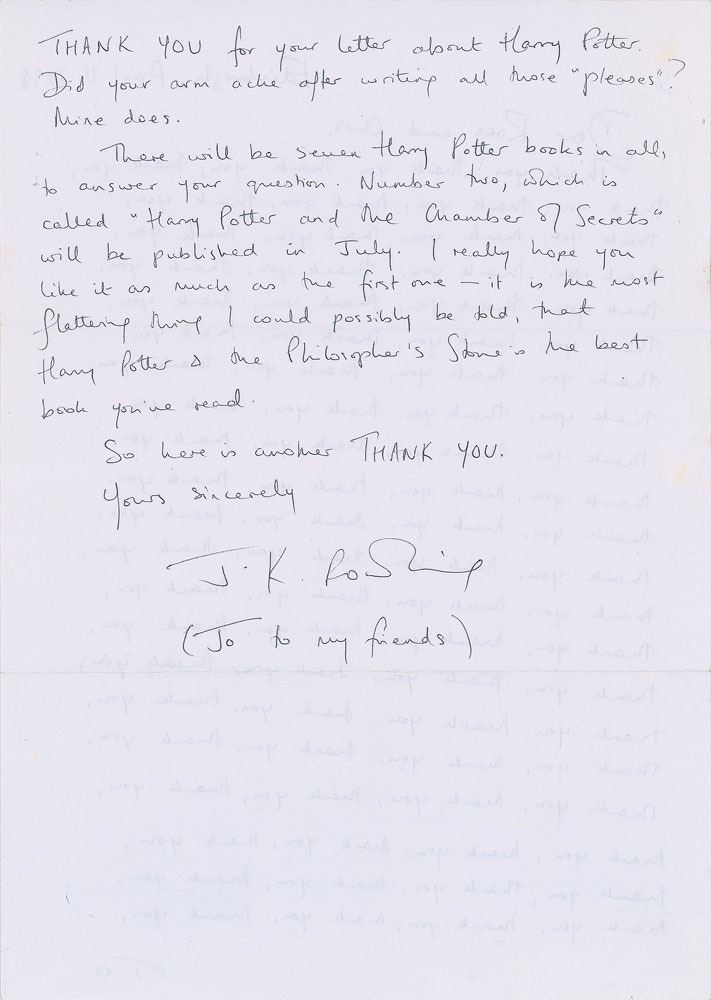 THANK YOU for your letter about Harry Potter.
Did your arm ache after writing all those "pleases"?
Mine does.
There will be seven Harry Potter books in all,
to answer your question. Number two, which is
called "Harry Potter and the Chamber of Secrets"
will be published in July. I really hope you
like it as much as the first one – it is the most
flattering thing I could possibly be told, that
Harry Potter & the Philosopher's Stone is the best
book you've read.
So here is another THANK YOU.
Yours sincerely
J.K. Rowling
(Jo to my friends)